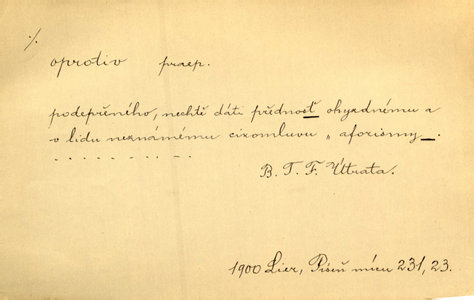 %
oprotiv praep.
podepřeného, nechtě dáti přednosť ohyzdnému a
v lidu neznámému cizomluvu „ aforismy_.
. . . . . . . . . .
B. T. F. Útrata.
1900 Lier, Písně míru 231, 23.